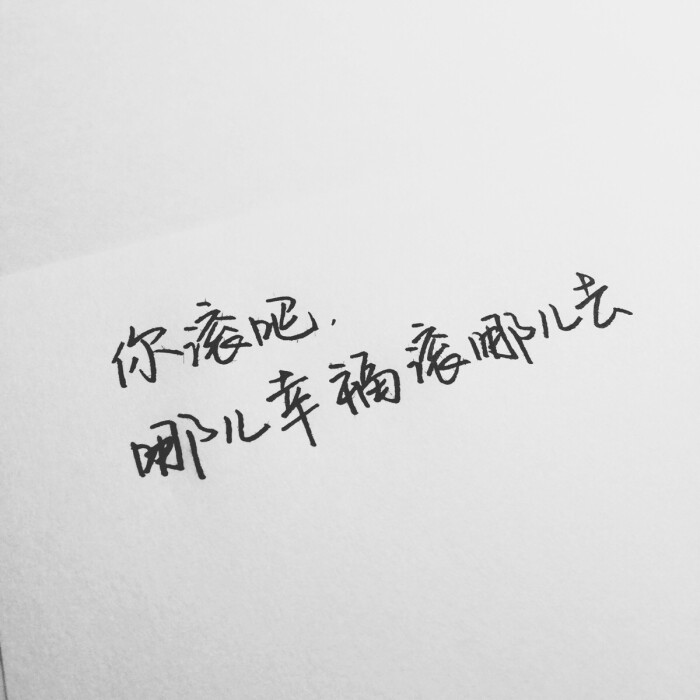 你滚吧,
哪儿幸福滚哪儿去